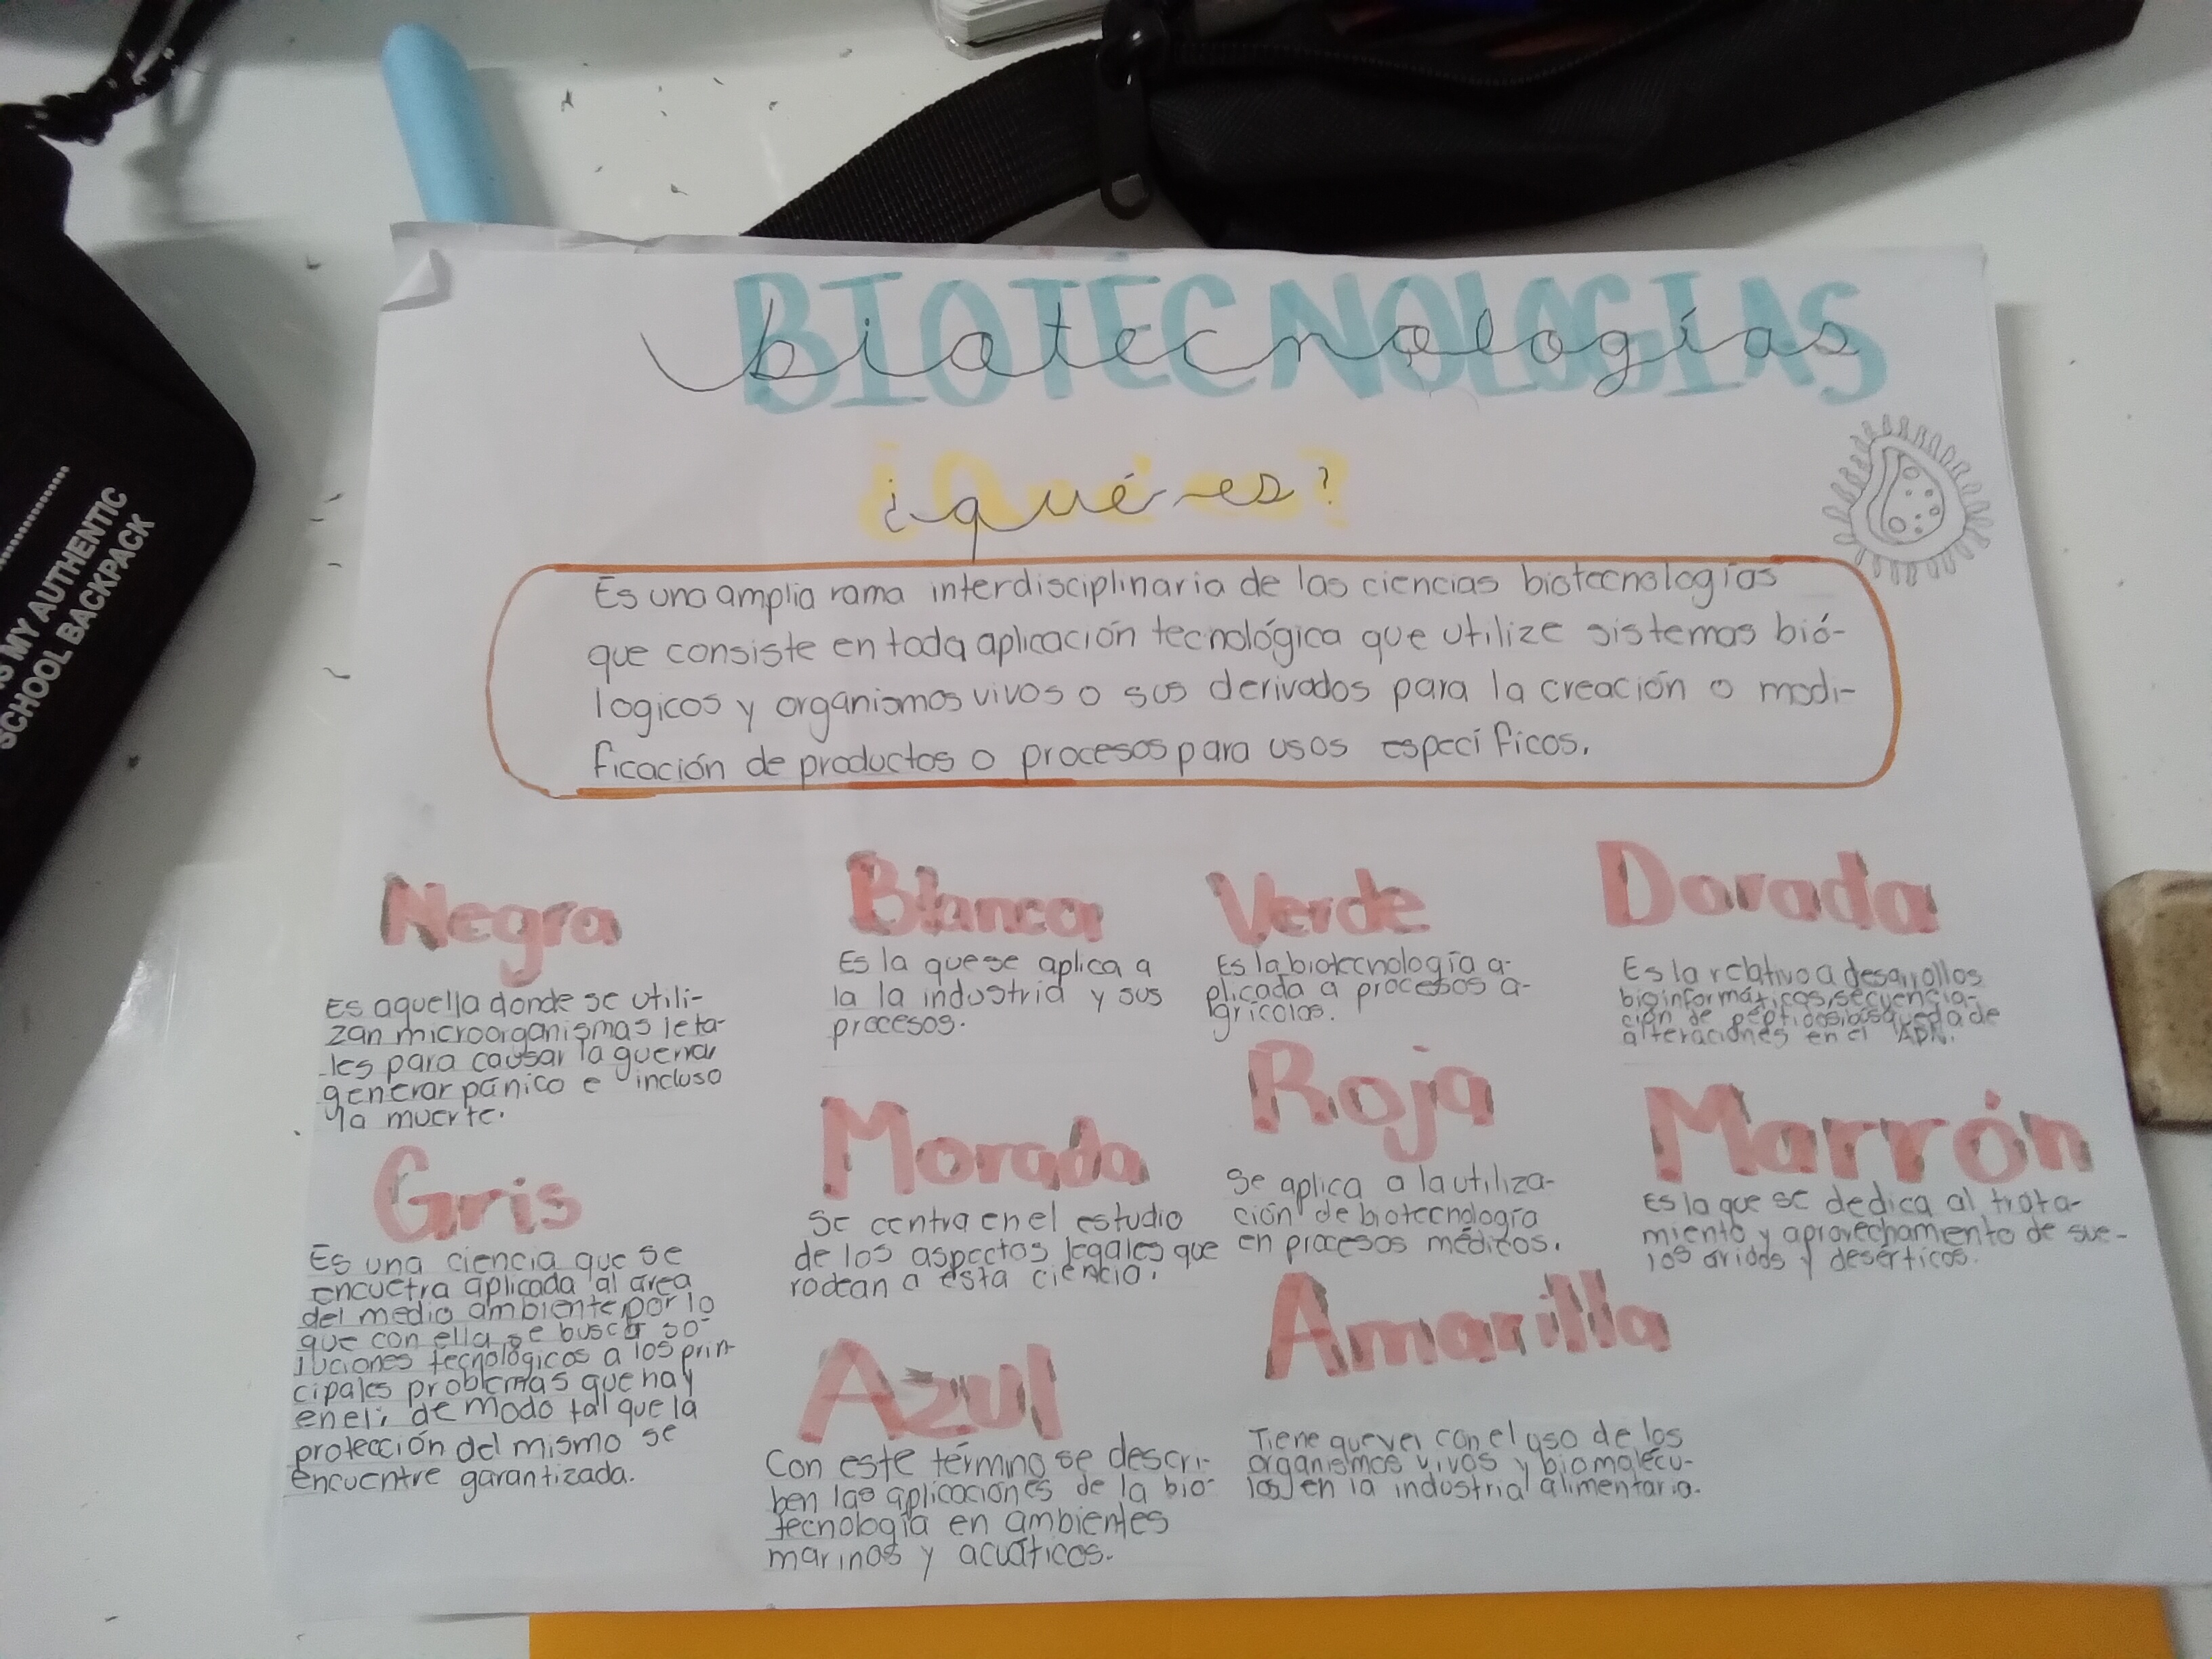 BIOTÉCNOLOGIAS
biotécnologías
¿Qué es?
¿qué es?
Es una amplia rama interdisciplinaria de las ciencias biotecnologías
que consiste en toda aplicación tecnológica que utilize sistemas bió-
logicos y organismos vivos o sus derivados para la creación o modi-
ficación de productos o procesos para usos especí ficos.
Negra
Es aquella donde se utili-
zan microorganismas leta-
les para causar la guerra
generar pánico e incluso
la muerte.
Gris
Es una ciencia que se
encuetra aplicada al área
del medio ambiente, por lo
que con ella se busca so-
luciones tecnológicos a los prin-
cipales problemas que hay
en el; de modo tal que la
protección del mismo se
encuentre garantizada.
Blanca
Es la que se aplica a
la la industria y sus
procesos.
Morada
Se centra en el estudio
de los aspectos legales que
rodean a ésta ciencia.
Azul
Con este término se descri-
ben las aplicaciones de la bio-
tecnología en ambientes
marinos y acuáticos.
Verde
Es la biotecnología a-
plicada a procesos a-
grícolas.
Roja
Se aplica a la utiliza-
ción de biotecnología
en procesos médicos.
Amarilla
Tiene que ver con el uso de los
organismos vivos y biomolécu-
las en la industria alimentaria.
Dorada
Es la relativo a desarrollos
bioinformáticos, secuencia-
ción de péptidos, búsqueda de
alteraciones en el ADN.
Marrón
Es la que se dedica al trata-
miento y aprovechamiento de sue-
los aridos y desérticos.
MY AUTHENTIC
SCHOOL BACKPACK